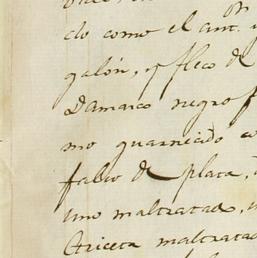 do como el ant.
galón, y fleco de
Damasco negro
mo guarnecido
falso de plata,
uno maltratado,
maltratad